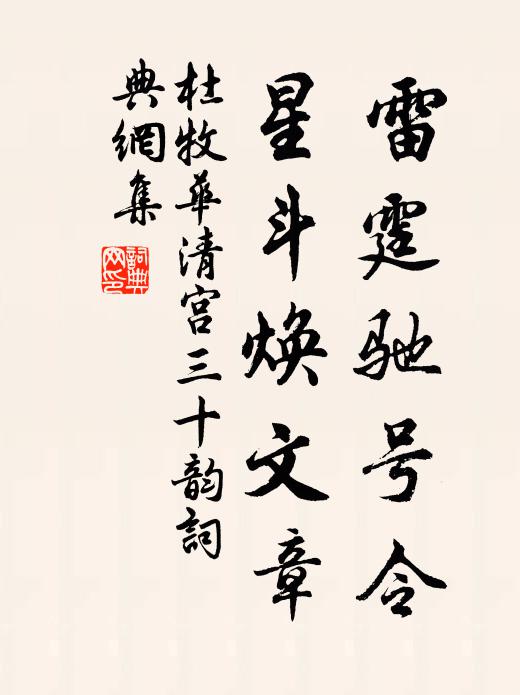 雷霆驰号令
星斗焕文章
杜牧華清宫三十韵詞
典網集
詞典網印